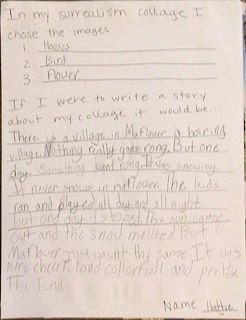 In my surrealism collage I
chose the images
1. Houses
2. Bird
3. flower
If I were to write a story
about my collage it would be...
There is a village in Maflower a boiring
village. Nothing really goes rong. But one
day something went rong. It was snowing.
It never snows in maflower. The kids
ran and played all day and all night
but one day it stoped. The sun came
out and the snow melted But
Maflower just wasnt the same. It was
more and collorfull and pretty
The End.
Name Hattie